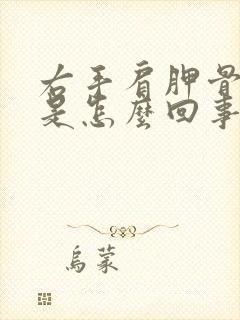 右手肩胛骨
是怎麼回事
烏蒙